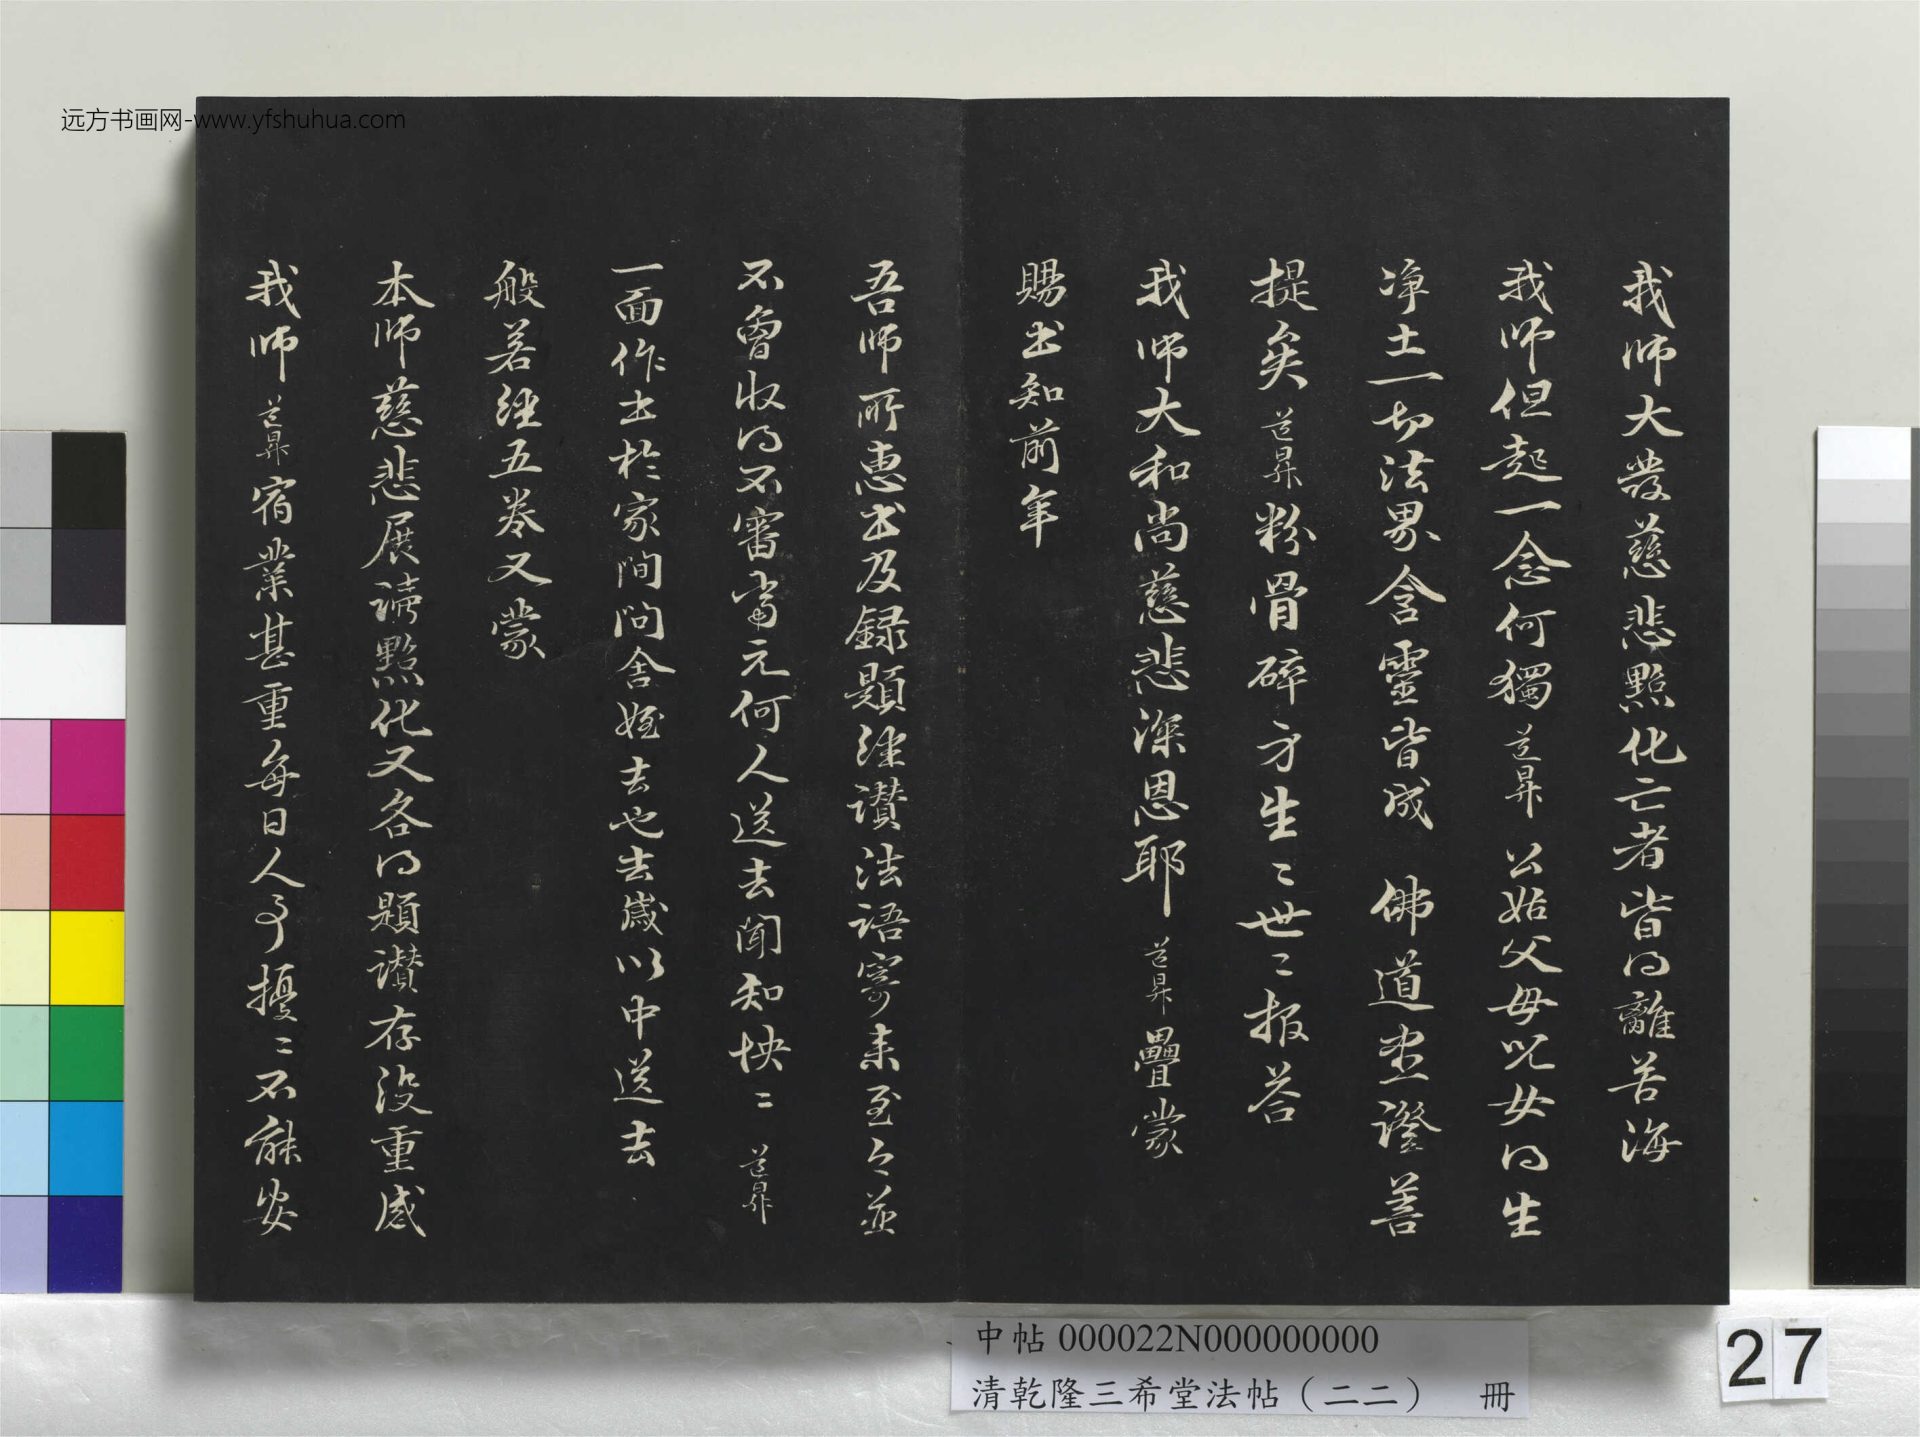 远方书画网-www.yfshuhua.com
我师大發慈悲點化亡者皆得離苦海
我师但起一念何獨道昇公姑父母兒女得生
净土一切法界含靈皆成 佛道盡證菩
提矣道昇粉骨碎身生〻世〻报荅
我师大和尚慈悲深恩耶 道昇疊蒙
賜书知前年
吾师所惠书及録題經讃法語寄来至今並
不曾收得不審當元何人送去聞知怏〻 道昇
一面作书於家间问舍姪去也去歲以中送去
般若經五卷又蒙
本师慈悲展讀點化又各得題讃存没重感
我师道昇宿業甚重每日人事擾〻不能安
中帖 000022N000000000
清乾隆三希堂法帖（二二） 冊
27